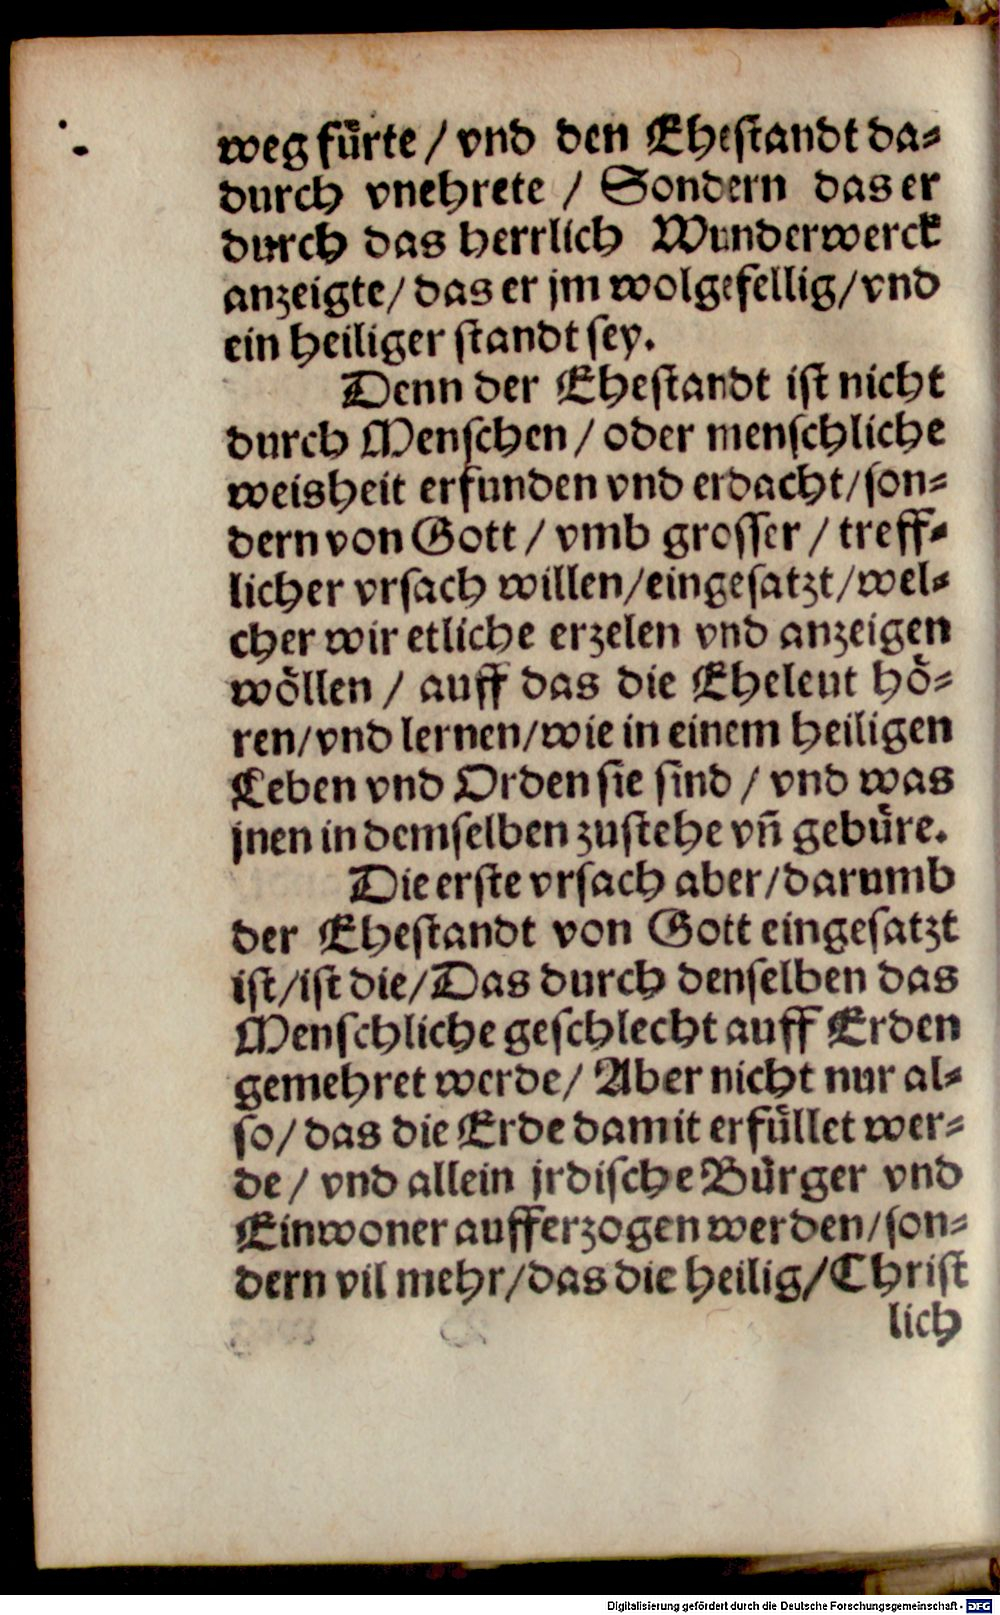 weg fürte / vnd den Ehestandt da⸗
durch vnehrete / Sondern das er
durch das herrlich Wunderwerck
anzeigte / das er jm wolgefellig / vnd
ein heiliger standt sey.
Denn der Ehestandt ist nicht
durch Menschen / oder menschliche
weisheit erfunden vnd erdacht / son⸗
dern von Gott / vmb grosser / treff⸗
licher vrsach willen / eingesatzt / wel⸗
cher wir etliche erzelen vnd anzeigen
wöllen / auff das die Eheleut hö⸗
ren / vnd lernen / wie in einem heiligen
Leben vnd Orden sie sind / vnd was
jnen in demselben zustehe vñ gebüre.
Die erste vrsach aber / darumb
der Ehestandt von Gott eingesatzt
ist / ist die / Das durch denselben das
Menschliche geschlecht auff Erden
gemehret werde / Aber nicht nur al⸗
so / das die Erde damit erfüllet wer⸗
de / vnd allein jrdische Bürger vnd
Einwoner aufferzogen werden / son⸗
dern vil mehr / das die heilig / Christ
lich
Digitalisierung gefördert durch die Deutsche Forschungsgemeinschaft - DFG